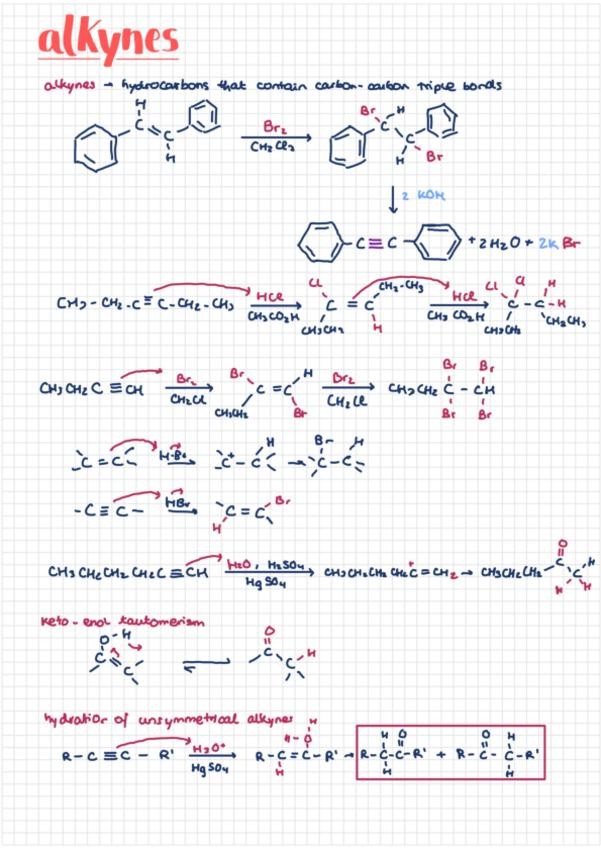 alkynes
alkynes → hydrocarbons that contain carbon-carbon triple bonds
H
C = C
H
Br₂
CH₂Cl₂
Br H
C
C
H Br
2 KOH
C ≡ C + 2H₂O + 2K Br
CH₃ - CH₂ - C ≡ C - CH₂ - CH₃
HCl
CH₃CO₂H
Cl CH₂-CH₃
C = C
CH₃CH₂ H
HCl
CH₃CO₂H
Cl Cl H
C - C - H
CH₃CH₂ CH₂CH₃
CH₃CH₂C ≡ CH
Br₂
CH₂Cl
Br H
C = C
CH₃CH₂ Br
Br₂
CH₂Cl
Br Br
CH₃CH₂C - CH
Br Br
C = C
H-Br
H
C⁺ - C
Br H
C - C
- C ≡ C -
HBr
Br
C = C
H
CH₃CH₂CH₂CH₂C ≡ CH
H₂O, H₂SO₄
HgSO₄
CH₃CH₂CH₂CH₂C⁺ = CH₂
O
CH₃CH₂CH₂ C H
C
H H
keto-enol tautomerism
O - H
C = C
O
C H
C
hydration of unsymmetrical alkynes
R - C ≡ C - R'
H₃O⁺
HgSO₄
H
H - O
R - C = C - R'
H
H O
R - C - C - R'
H
+
O H
R - C - C - R'
H